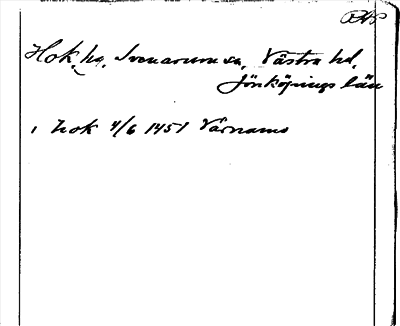 Hok, hg, Svenarums sn, Västra hd,
Jönköpings län
i hok 4/6 1451 Värnamo